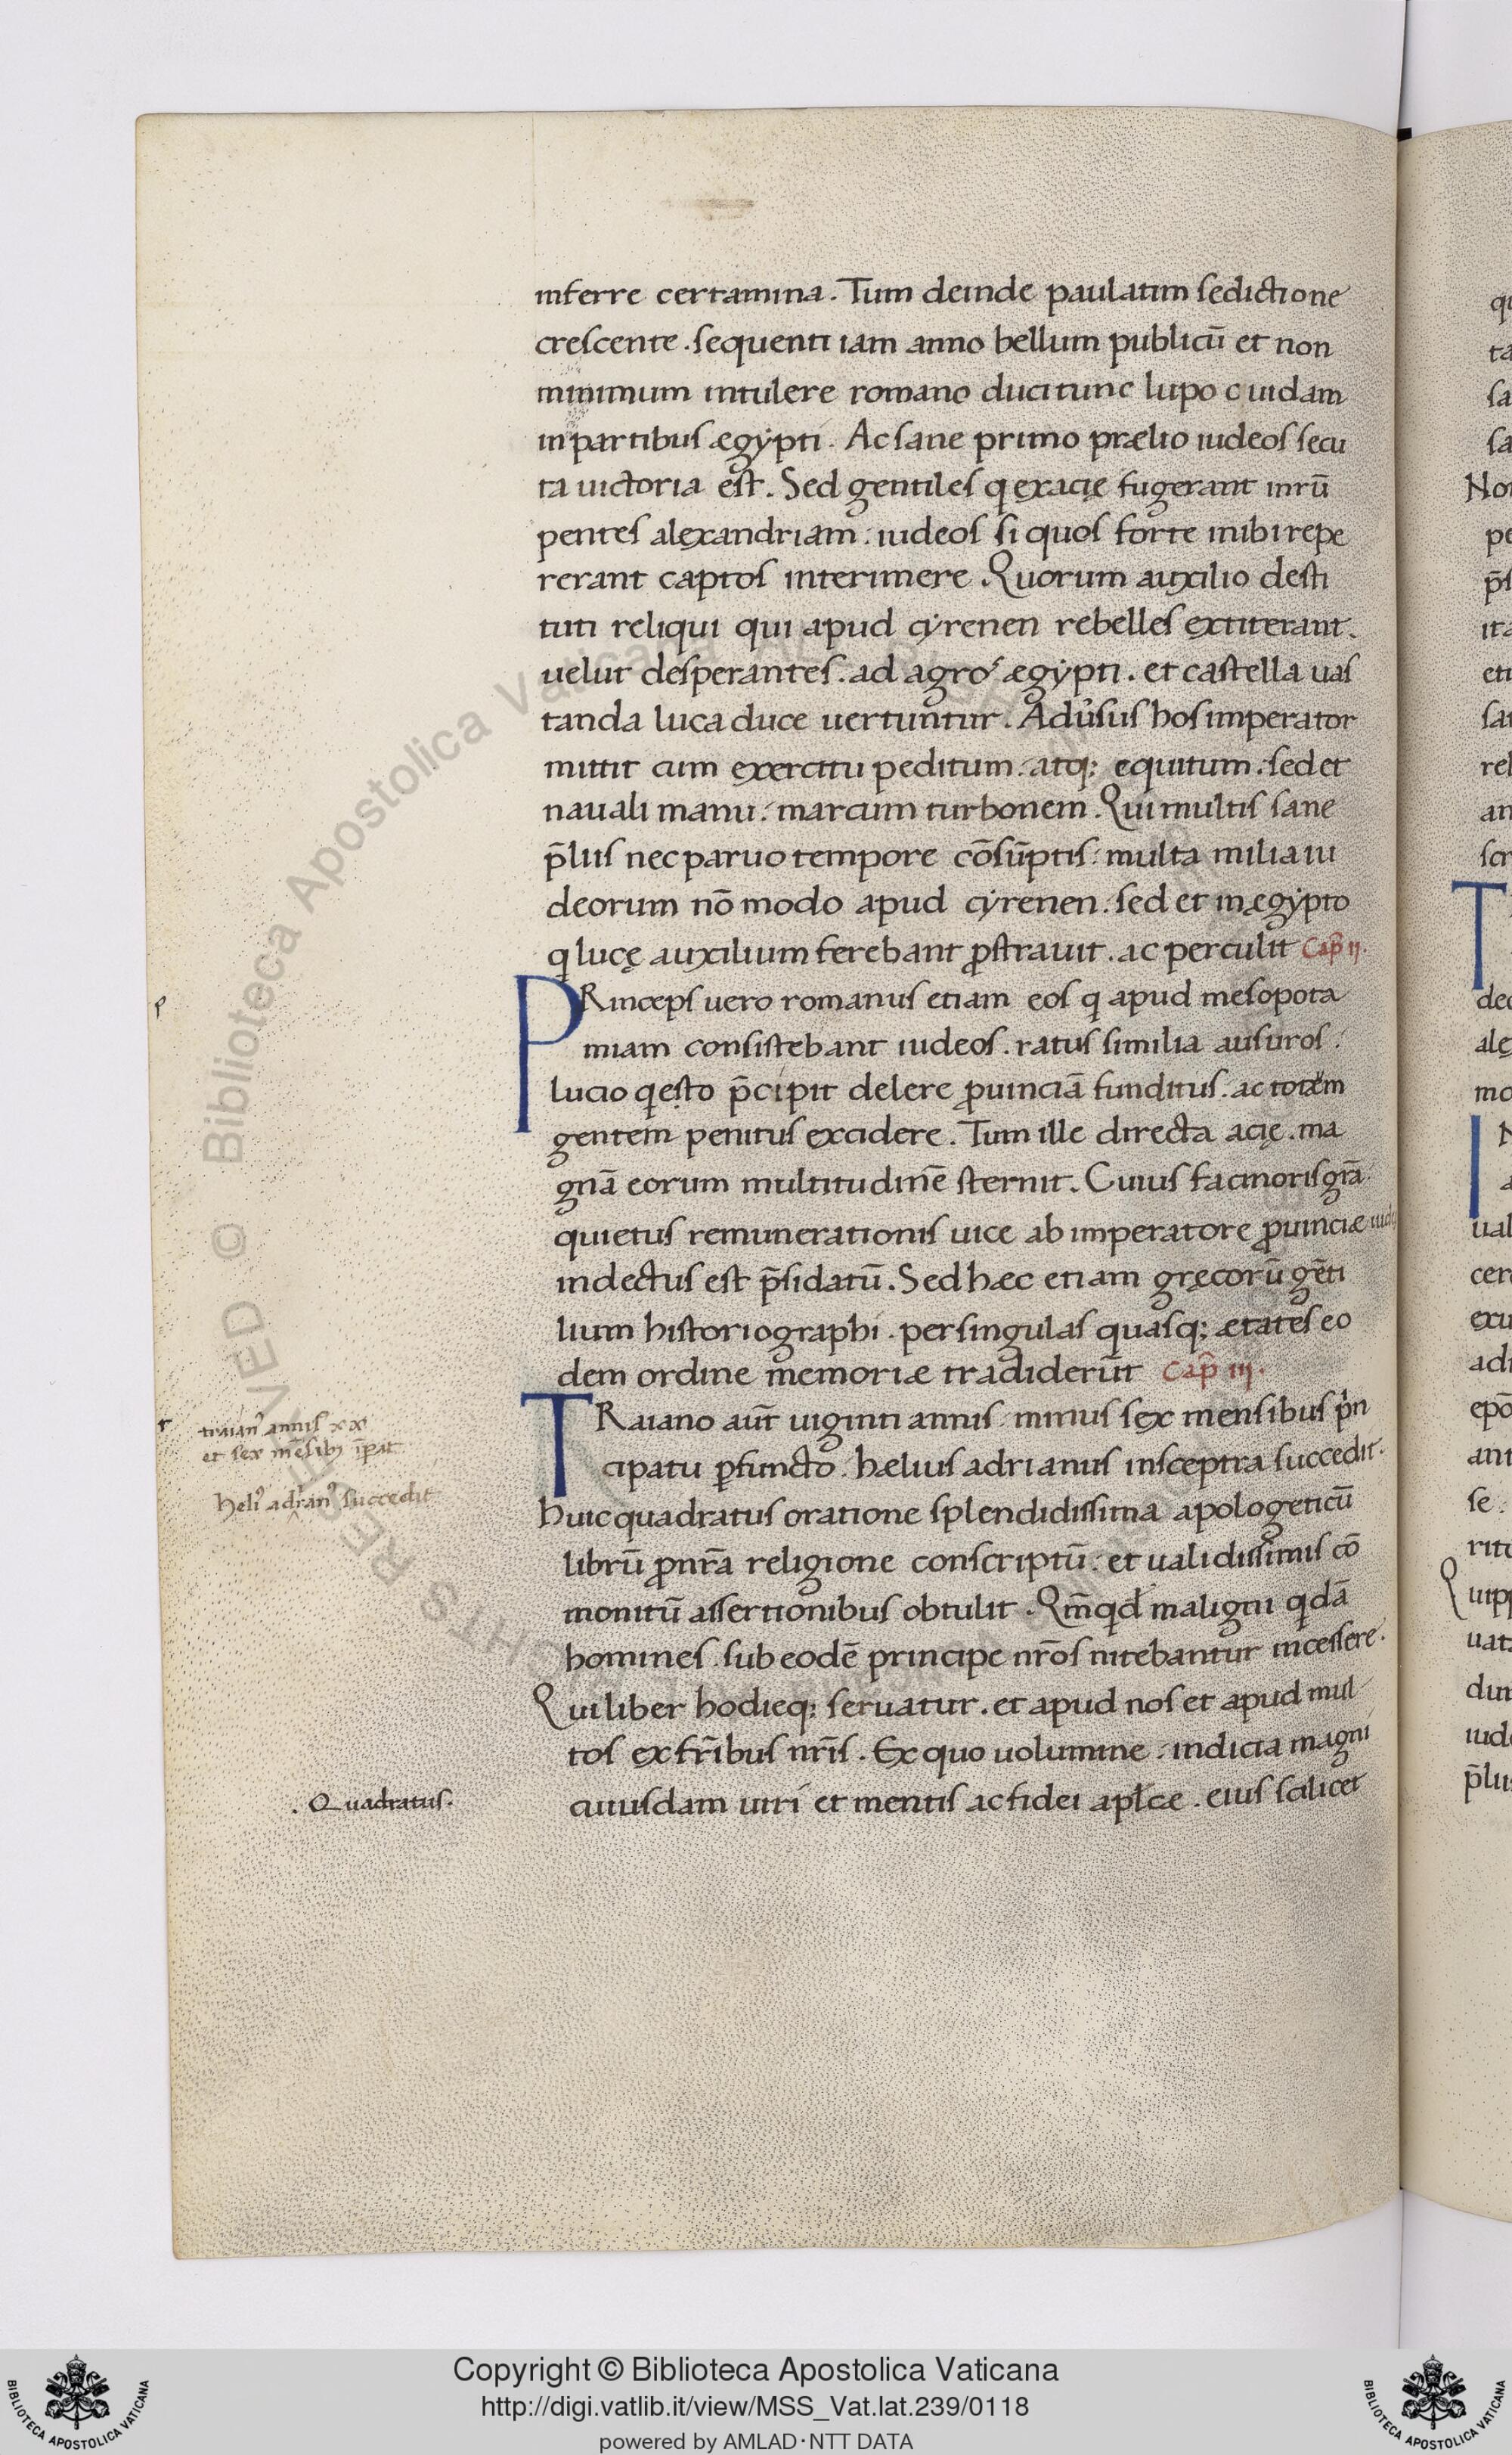 inferre certamina. Tum deinde paulatim sedictione
crescente. sequenti iam anno bellum publicū et non
minimum intulere romano duci tunc lupo cuidam
in partibus ægypti. Ac sane primo prælio iudeos secu
ta uictoria est. Sed gentiles q exacię fugerant inrū
pentes alexandriam: iudeos si quos forte inibi repe
rerant captos interimere. Quorum auxilio desti
tuti reliqui qui apud cyrenen rebelles extiterant.
uelut desperantes. ad agros ægypti. et castella uas
tanda luca duce uertuntur. Adủsus hos imperator
mittit cum exercitu peditum. atq; equitum. sed et
nauali manu: marcum turbonem. Qui multis sane
p̄liis nec paruo tempore cōsūptis: multa milia iu
deorum nō modo apud cyrenen. sed et in ęgypto
q lucę auxilium ferebant ꝓstrauit. ac perculit Cap̄ ii.
PRinceps uero romanus etiam eos q apud mesopota
miam consistebant iudeos. ratus similia ausuros:
lucio qesto p̄cipit delere ꝓuinciā funditus. ac totam
gentem penitus excidere. Tum ille directa acię. ma
gnā eorum multitudinē sternit. Cuius facinoris grā
quietus remunerationis uice ab imperatore ꝓuinciæ
indectus est p̄sidatū. Sed hæc etiam gręcorū gēti
lium historiographi. per singulas quasq; ætates eo
dem ordine memoriæ tradiderūt Cap̄ iii.
TRaiano aut̄ uiginti annis: minus sex mensibus pͥn
cipatu ꝑfuncto. hælius adrianus in sceptra succedit.
huic quadratus oratione splendidissima apologeticū
librū ꝓ nr̄a religione conscriptū: et ualidissimis cō
monitū assertionibus obtulit. Qm̄ qd̄ maligni qdā
homines. sub eodē principe nr̄os nitebantur incessere.
Qui liber hodieq; seruatur. et apud nos et apud mul
tos ex fr̄ibus nr̄is. Ex quo uolumine: indicia magni
cuiusdam uiri et mentis ac fidei apl̄cæ. eius scilicet
p
t
traianꝰ annis xx
et sex mēsibꝫ īpat
heliꝰ adrianꝰ succedit
. Quadratus.
Copyright © Biblioteca Apostolica Vaticana
http://digi.vatlib.it/view/MSS_Vat.lat.239/0118
powered by AMLAD·NTT DATA
BIBLIOTECA APOSTOLICA VATICANA
BIBLIOTECA APOSTOLICA VATICANA